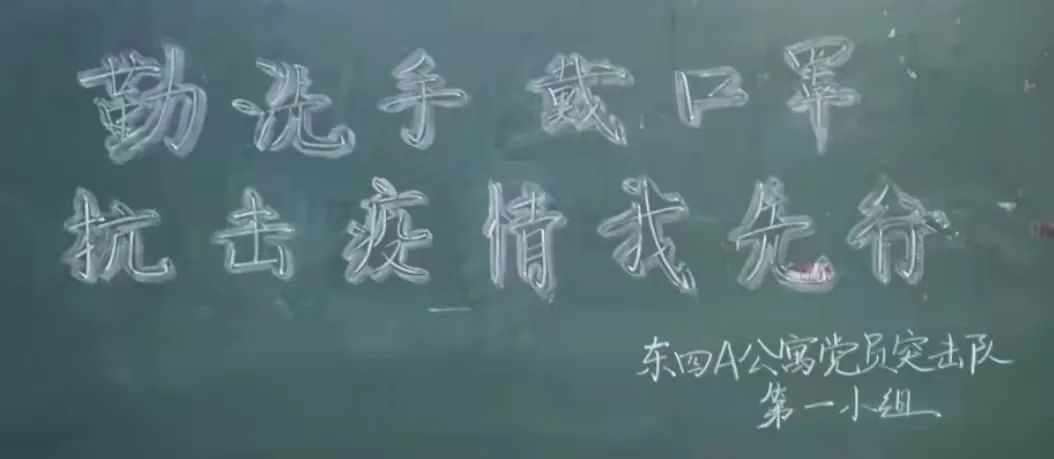 勤洗手 戴口罩
抗击疫情我先行
东四A公寓党员突击队
第一小组